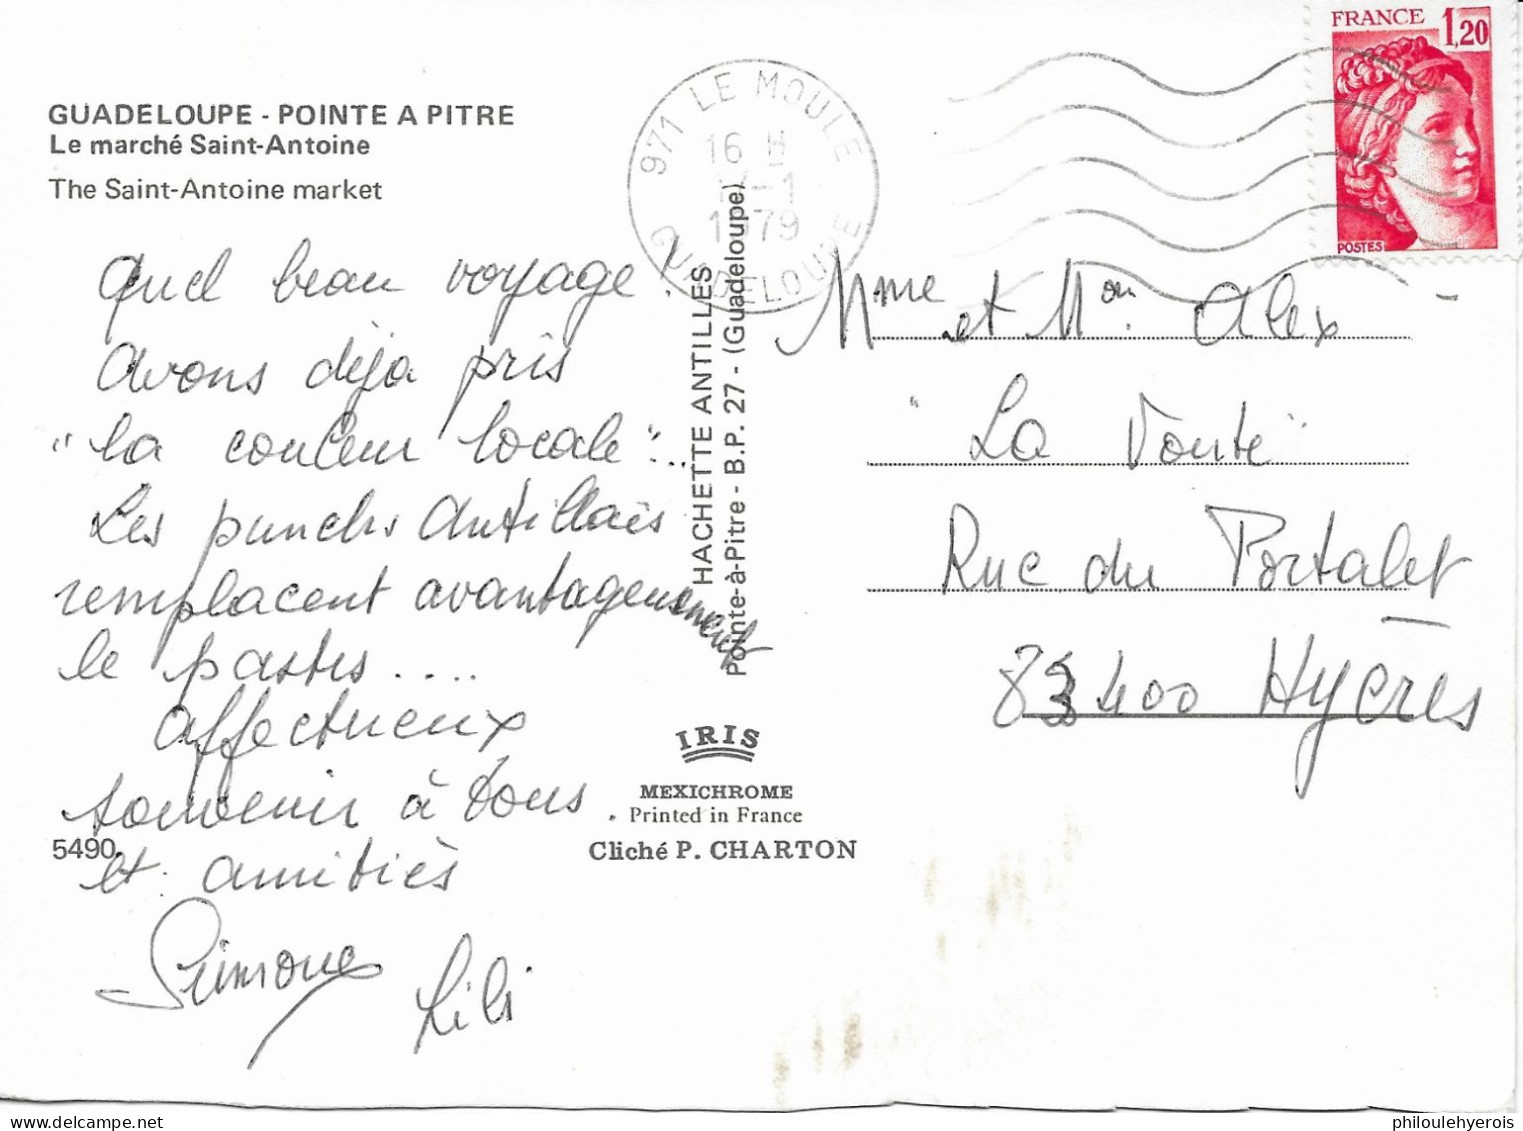 GUADELOUPE - POINTE A PITRE
Le marché Saint-Antoine
The Saint-Antoine market
Quel beau voyage !
Avons déjà pris
"la couleur locale"...
Les punchs Antillais
remplacent avantageusement
le pastis ....
affectueux
souvenir à tous
et amitiés
Simone
Lili
5490
971 LE MOULE
16 H
-1
1979
GUADELOUPE
HACHETTE ANTILLES
Pointe-à-Pitre - B.P. 27 - (Guadeloupe)
IRIS
MEXICHROME
Printed in France
Cliché P. CHARTON
FRANCE 1,20
POSTES
Mme et Mon. Alex
"La Voute"
Rue du Portalet
83400 Hyères
philoulehyerois